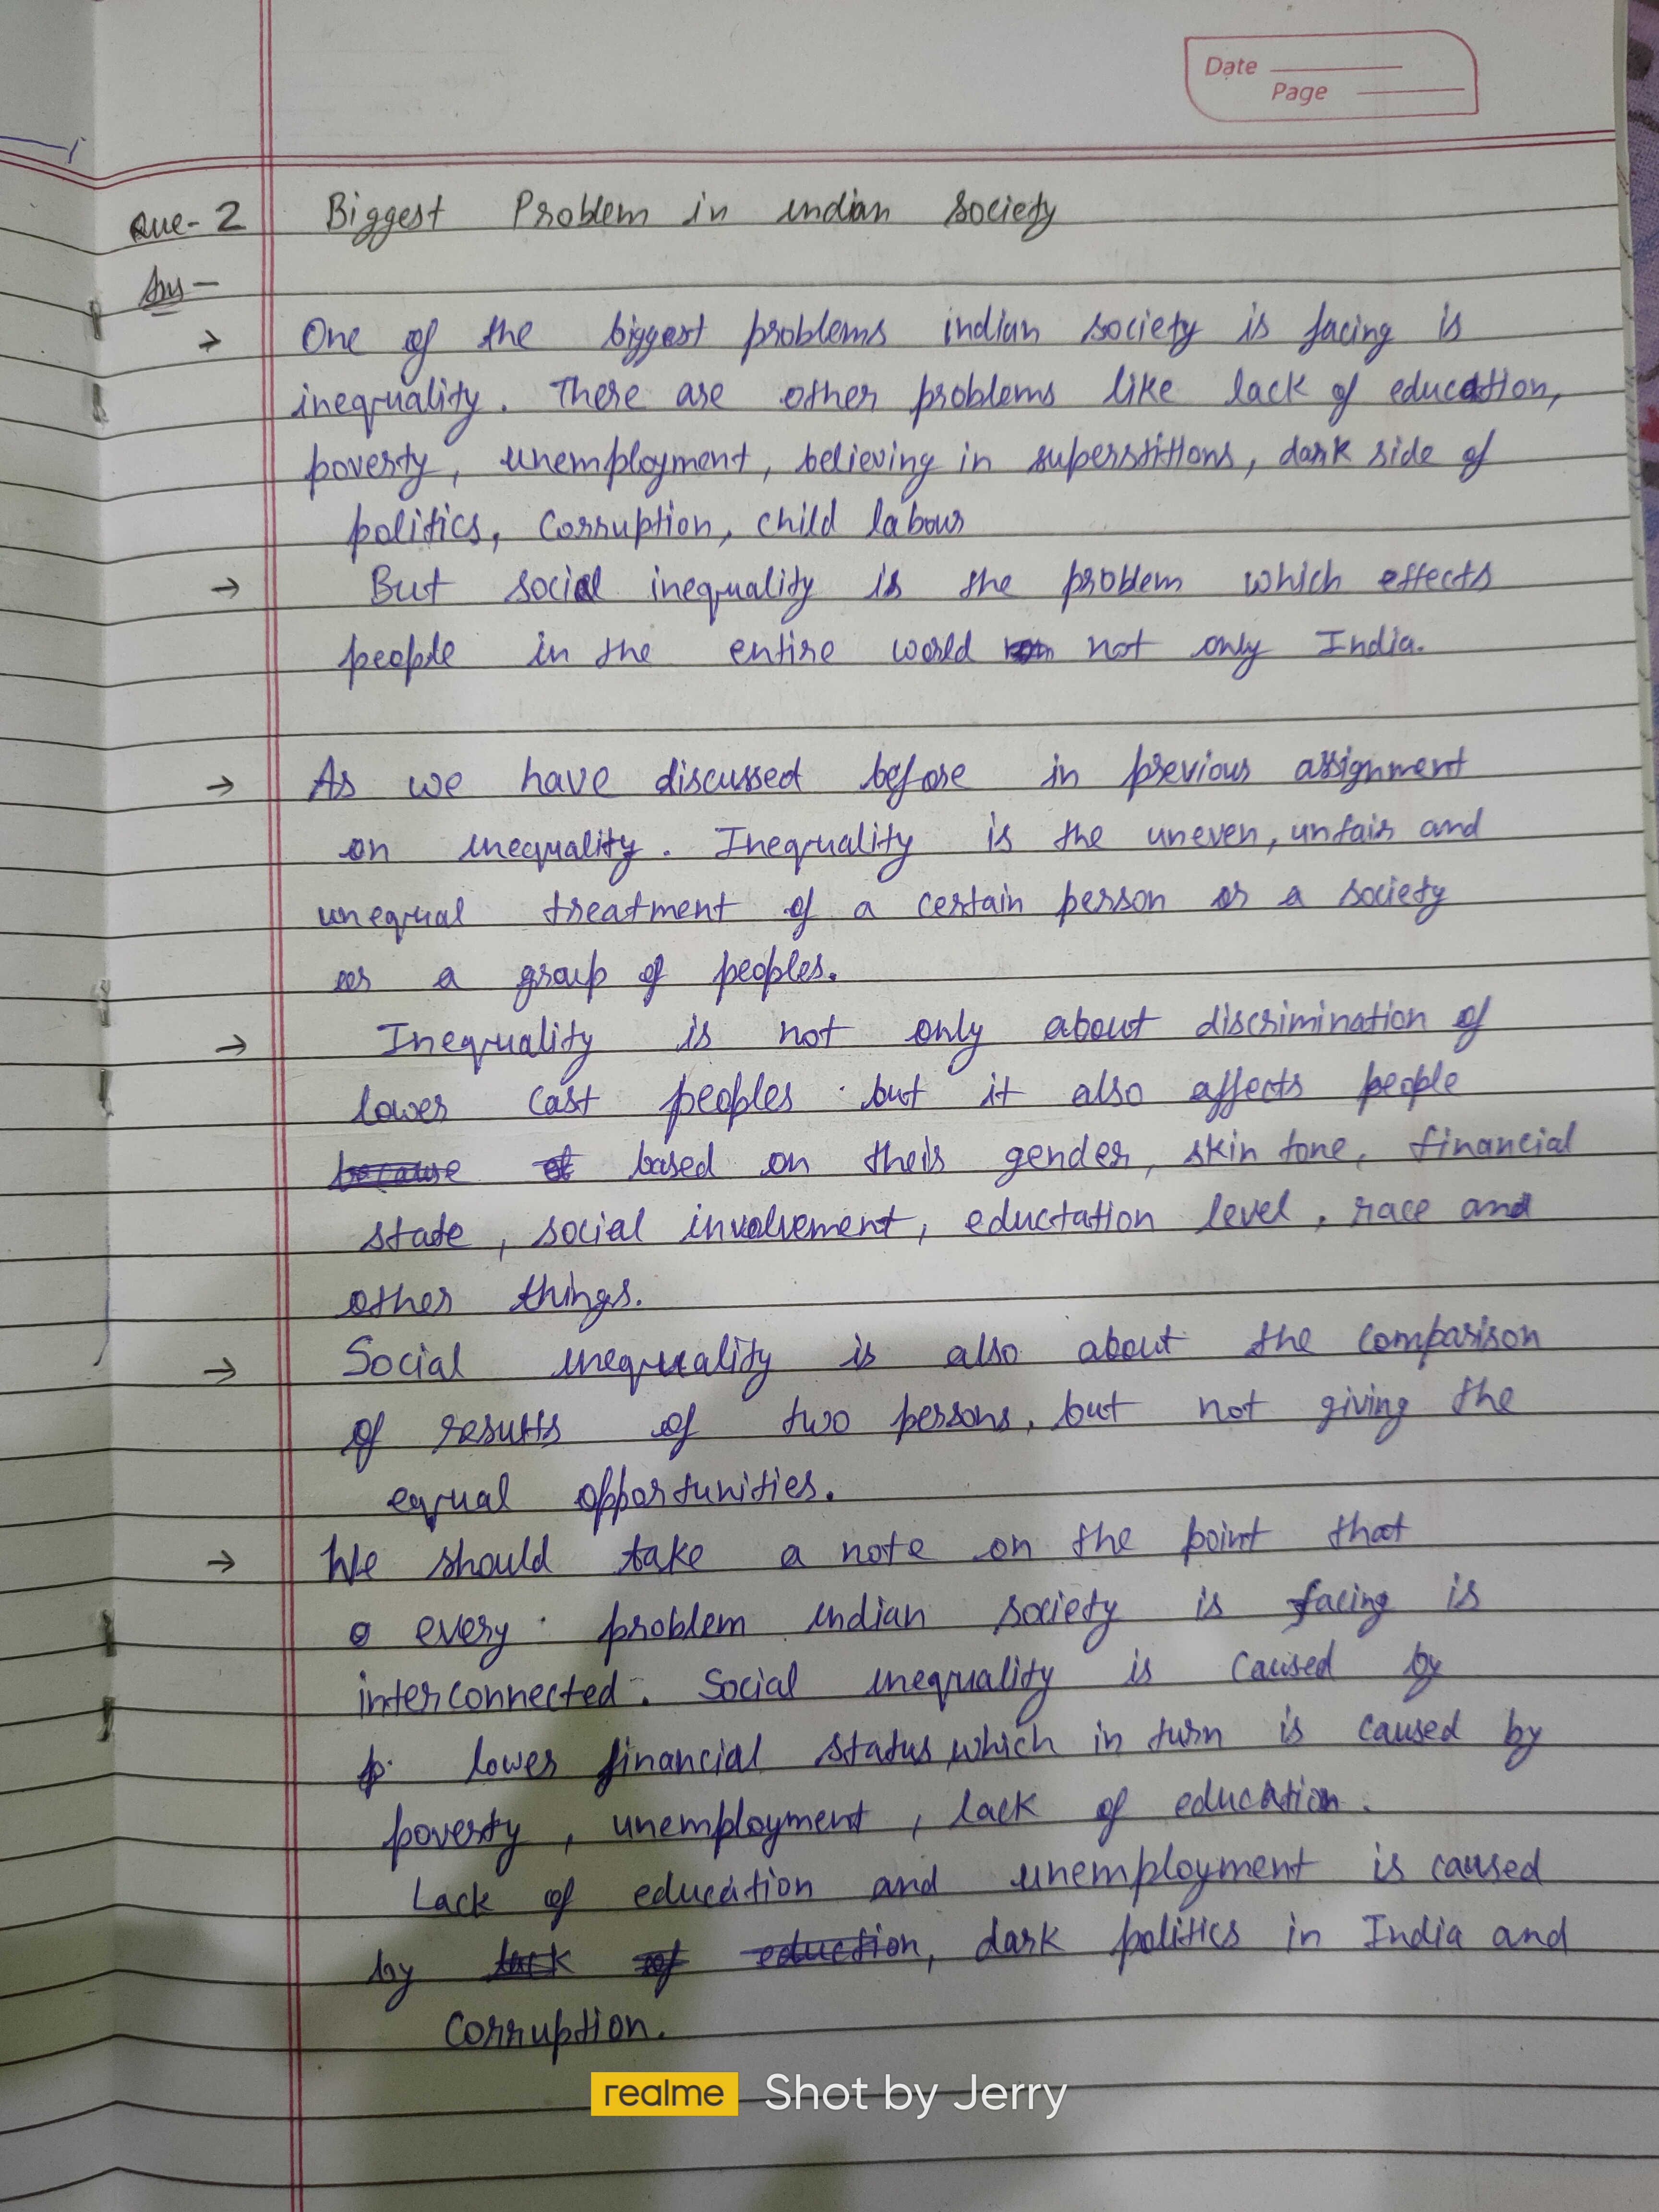 Date
Page
Que-2 Biggest Problem in indian society
Ans-
→ One of the biggest problems indian society is facing is
inequality. There are other problems like lack of education,
poverty, unemployment, believing in superstitions, dark side of
politics, corruption, child labour
→ But social inequality is the problem which effects
people in the entire world not only India.
→ As we have discussed before in previous assignment
on inequality. Inequality is the uneven, unfair and
unequal treatment of a certain person or a society
or a group of peoples.
→ Inequality is not only about discrimination of
lower cast peoples but it also affects people
because of based on their gender, skin tone, financial
state, social involvement, eductation level, race and
other things.
→ Social inequality is also about the comparison
of results of two persons, but not giving the
equal opportunities.
→ We should take a note on the point that
every problem indian society is facing is
interconnected. Social inequality is caused by
lower financial status, which in turn is caused by
poverty, unemployment, lack of education.
Lack of education and unemployment is caused
by lack of eduction, dark politics in India and
corruption.
realme Shot by Jerry